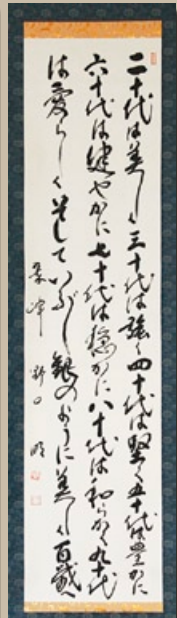 二十代は美しく三十代は強く四十代は堅く五十代は豊かに
六十代は健やかに七十代は穏かに八十代は和らかく九十代
は愛らしくそしていぶし銀のように美しく百歳